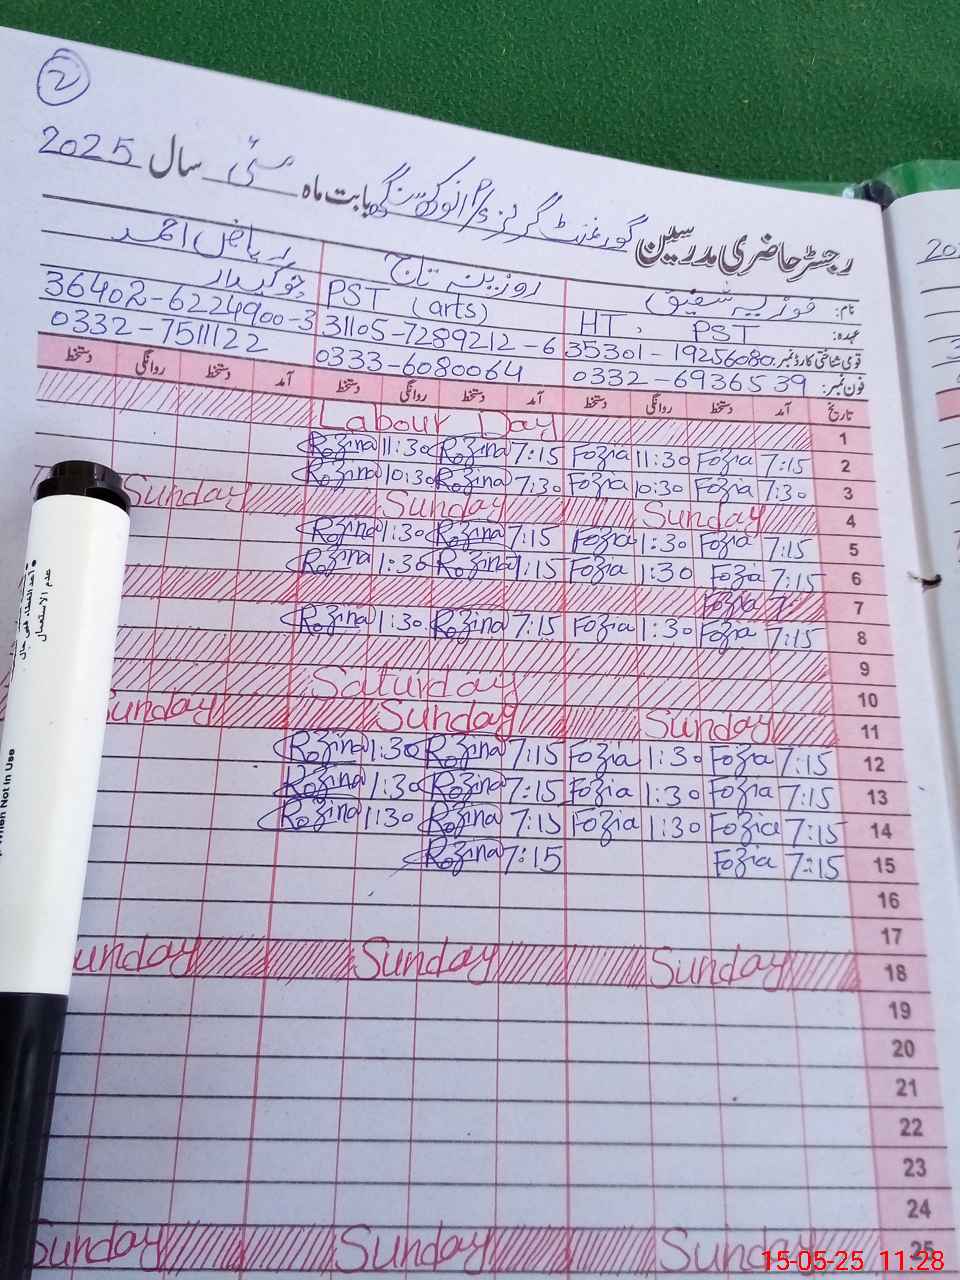 2
رجسٹر حاضری مدرسین گورنمنٹ گرلز P/S انوکھ سنگھ بابت ماہ مئی سال 2025
نام: فوزیہ شفیق روزینہ تاج ریاض احمد
عہدہ: HT, PST PST (arts) چوکیدار
قومی شناختی کارڈ نمبر: 35301-19256080 31105-7289212-6 36402-6224900-3
فون نمبر: 0332-6936539 0333-6080064 0332-7511122
تاریخ آمد دستخط روانگی دستخط آمد دستخط روانگی دستخط آمد دستخط روانگی دستخط
1 Labour Day
2 7:15 Fozia 11:30 Fozia 7:15 Rozina 11:30 Rozina
3 7:30 Fozia 10:30 Fozia 7:30 Rozina 10:30 Rozina
4 Sunday Sunday Sunday
5 7:15 Fozia 1:30 Fozia 7:15 Rozina 1:30 Rozina
6 7:15 Fozia 1:30 Fozia 7:15 Rozina 1:30 Rozina
7 7: Fozia
8 7:15 Fozia 1:30 Fozia 7:15 Rozina 1:30 Rozina
9
10 Saturday
11 Sunday Sunday Sunday
12 7:15 Fozia 1:30 Fozia 7:15 Rozina 1:30 Rozina
13 7:15 Fozia 1:30 Fozia 7:15 Rozina 1:30 Rozina
14 7:15 Fozia 1:30 Fozia 7:15 Rozina 1:30 Rozina
15 7:15 Fozia 7:15 Rozina
16
17
18 Sunday Sunday Sunday
19
20
21
22
23
24
25 Sunday Sunday Sunday
When Not in Use
عدم الاستعمال
15-05-25 11:28